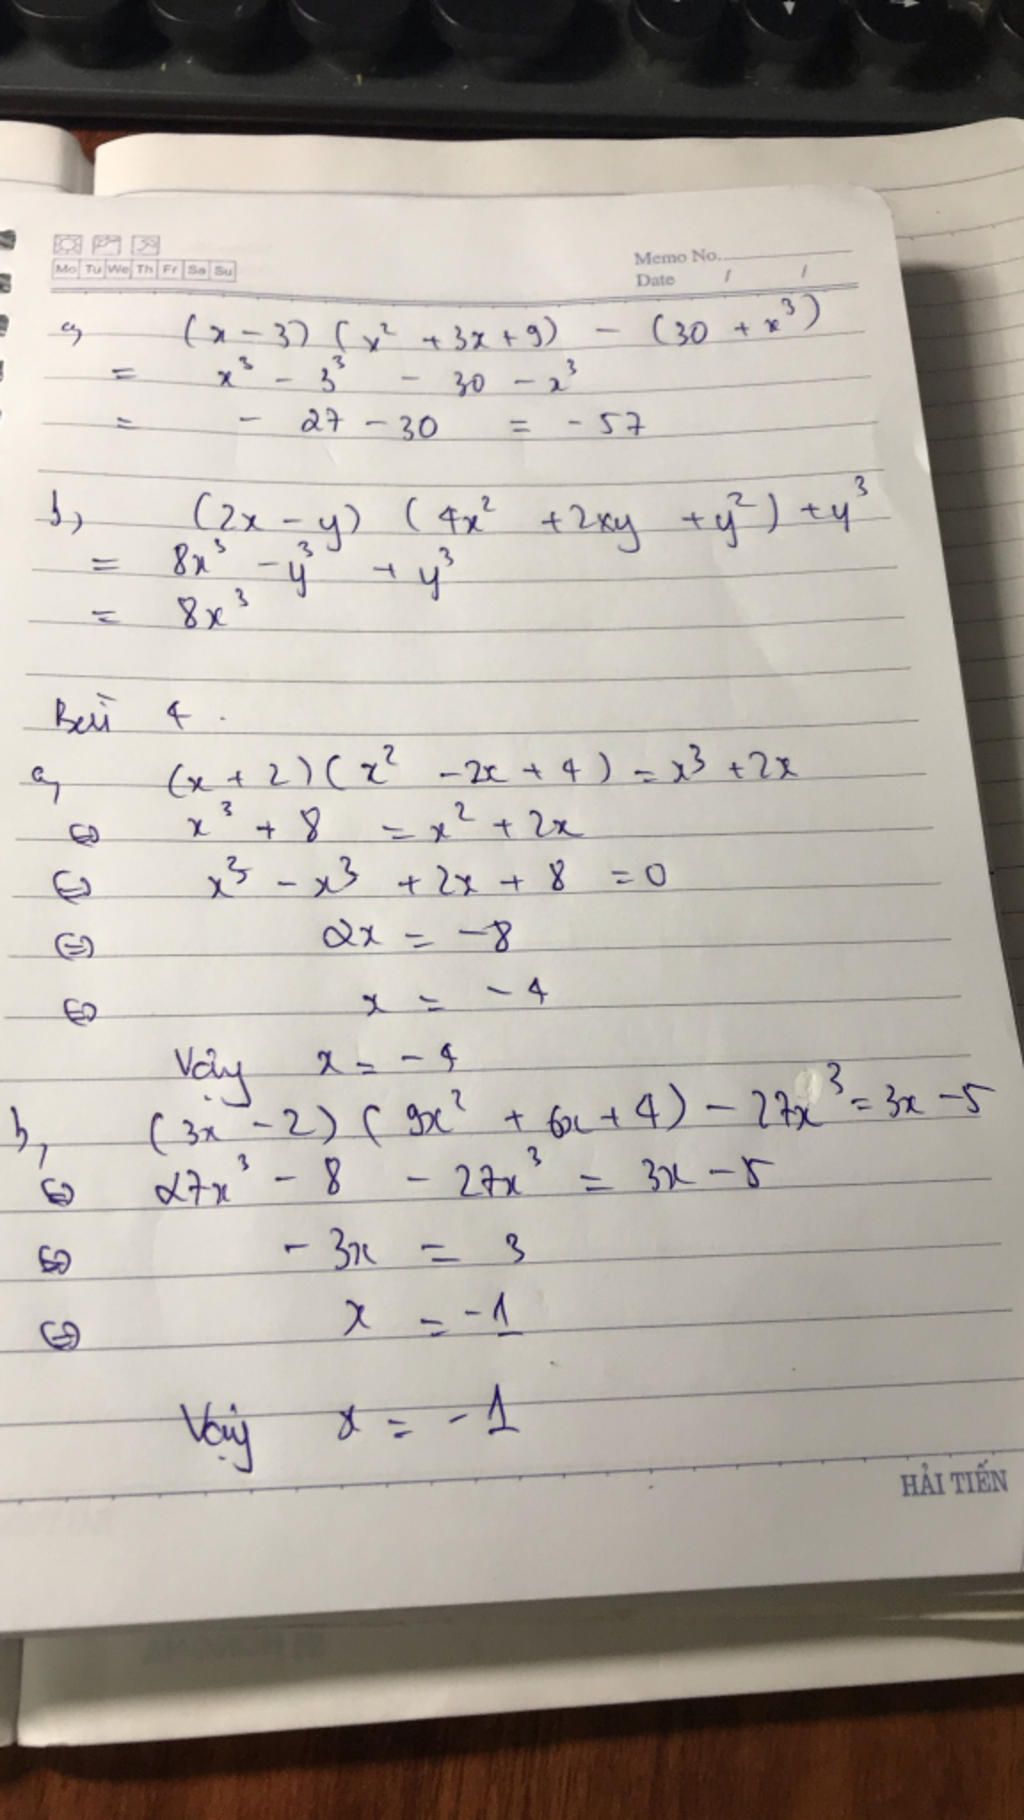 Mo Tu We Th Fr Sa Su
Memo No.
Date / /
a, (x - 3) (x² + 3x + 9) - (30 + x³)
= x³ - 3³ - 30 - x³
= - 27 - 30 = - 57
b, (2x - y) (4x² + 2xy + y²) + y³
= 8x³ - y³ + y³
= 8x³
Bài 4.
a, (x + 2)(x² - 2x + 4) = x³ + 2x
⇔ x³ + 8 = x² + 2x
⇔ x³ - x³ + 2x + 8 = 0
⇔ 2x = -8
⇔ x = -4
Vậy x = -4
b, (3x - 2) (9x² + 6x + 4) - 27x³ = 3x - 5
⇔ 27x³ - 8 - 27x³ = 3x - 5
⇔ - 3x = 3
⇔ x = -1
Vậy x = -1
HẢI TIẾN